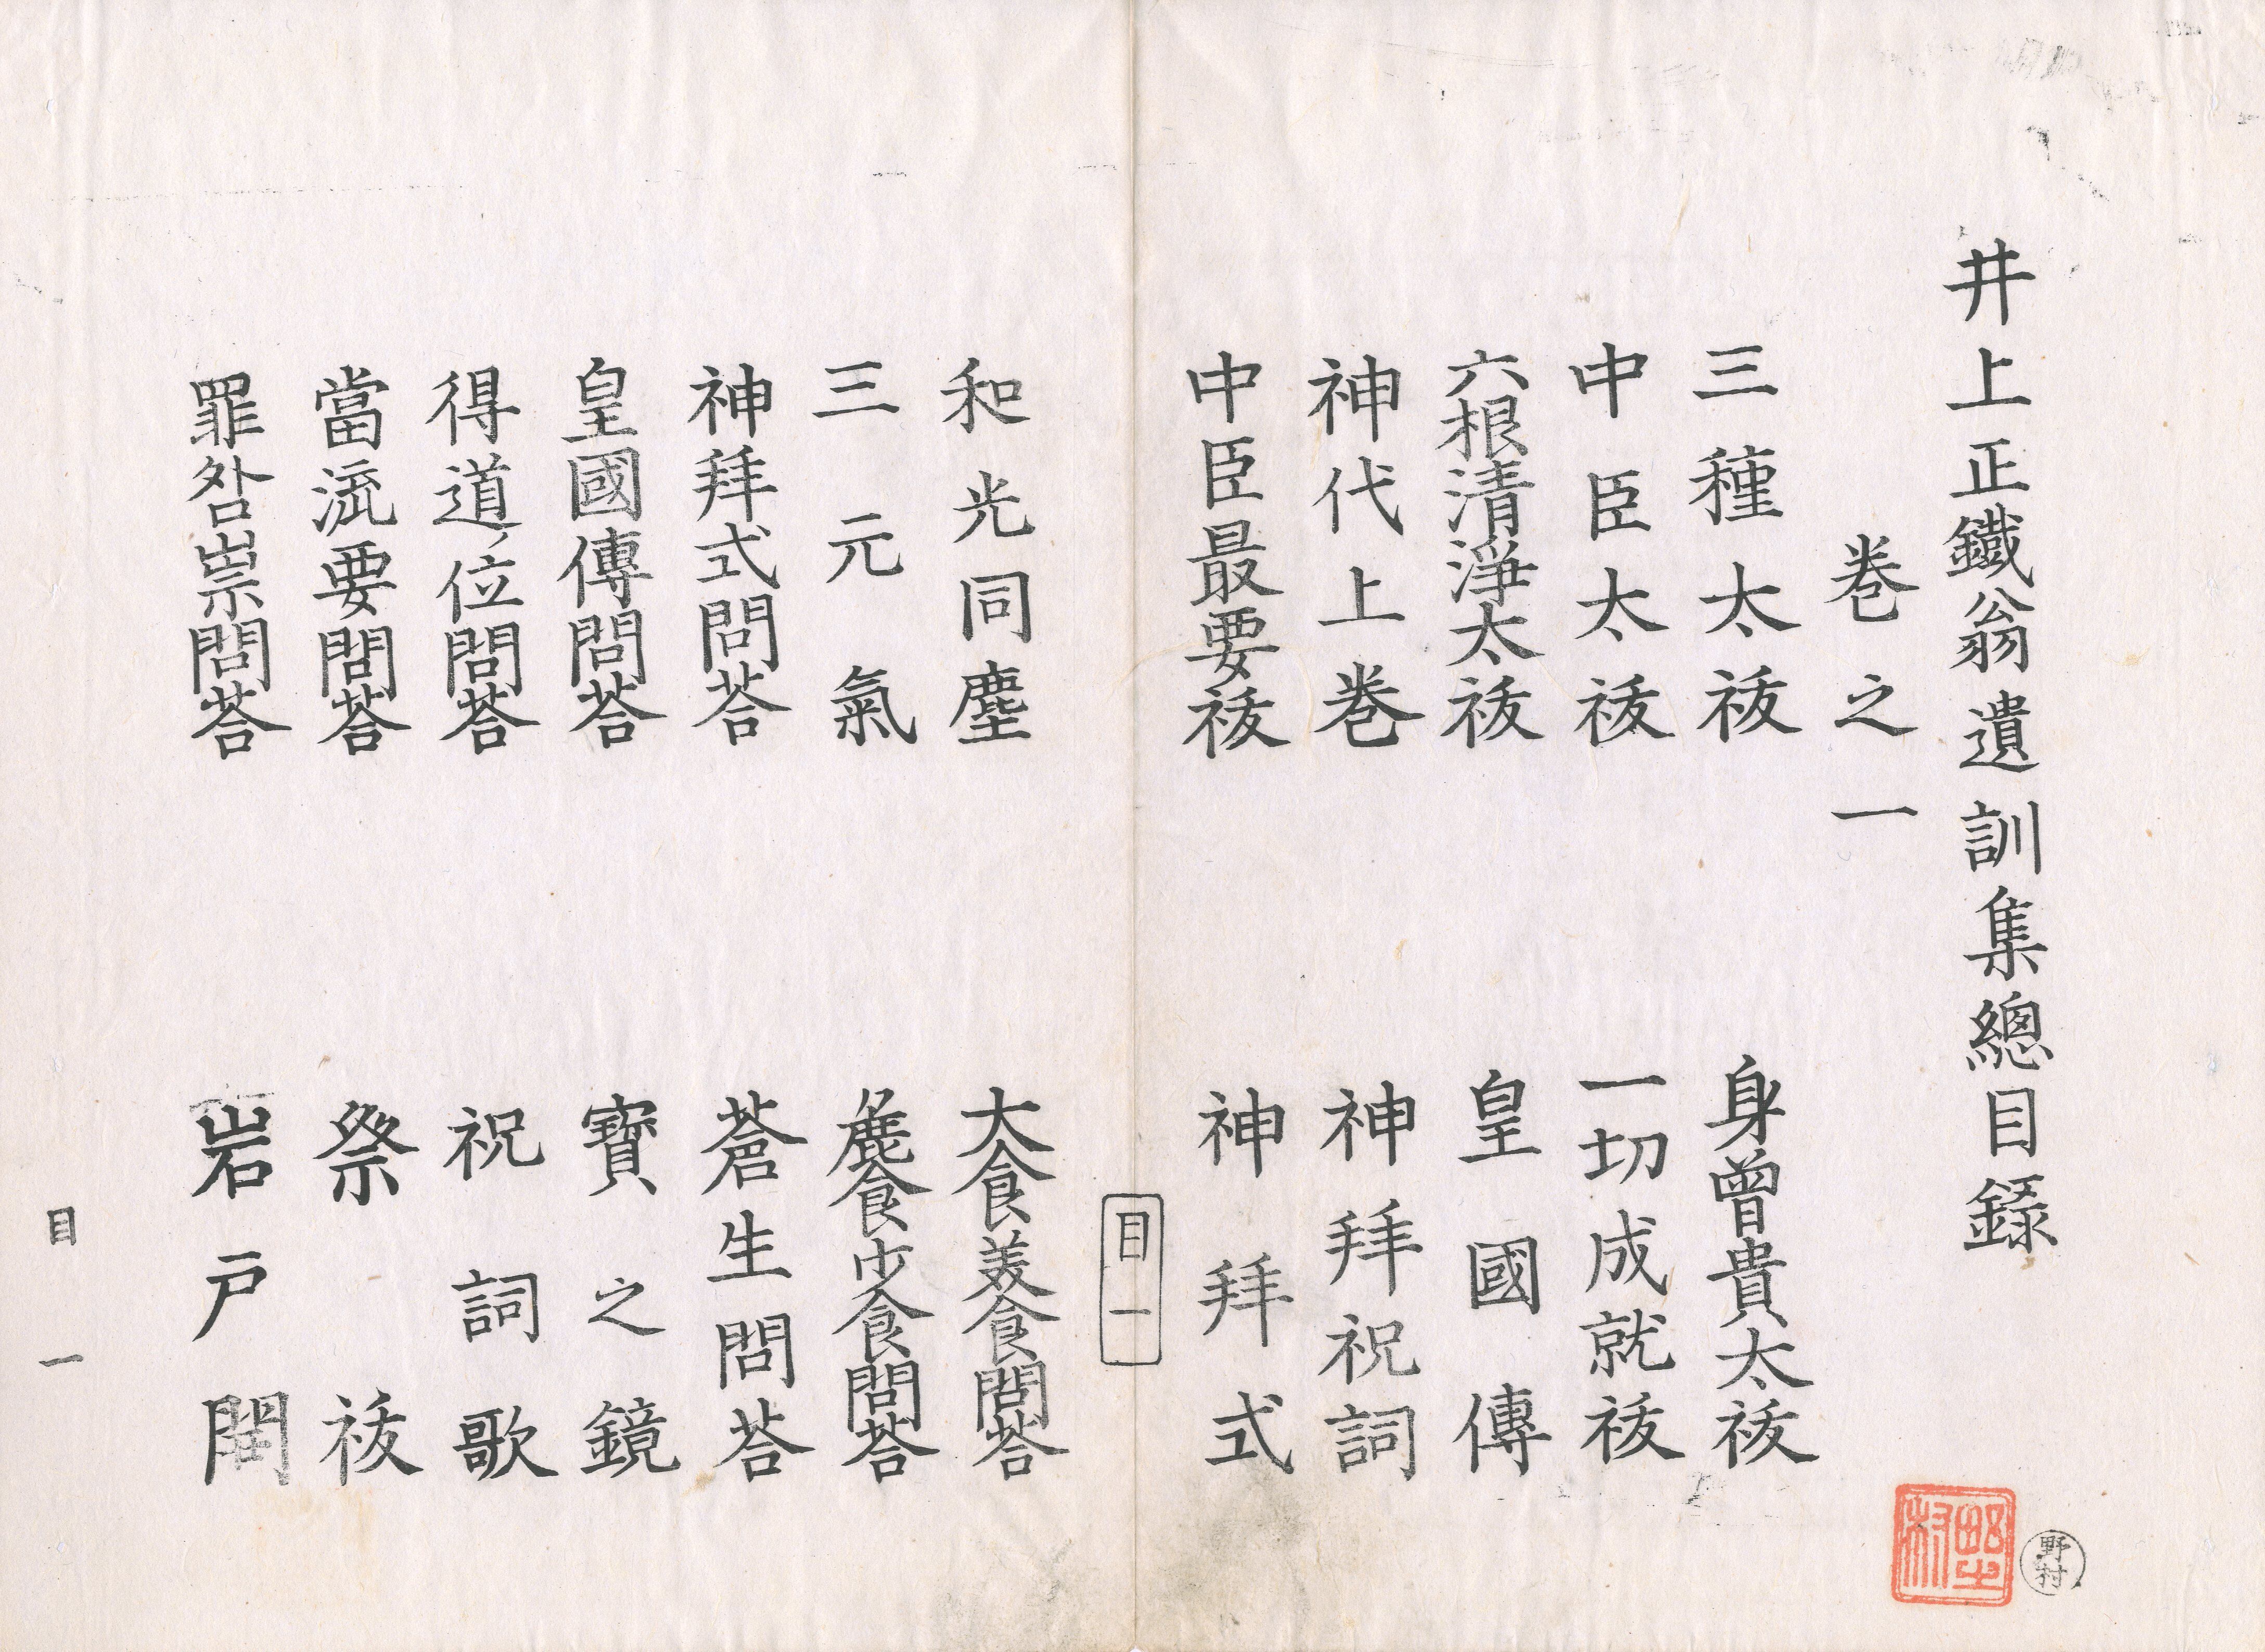 井上正鐵翁遺訓集總目錄
卷之一
三種太祓
身曾貴太祓
中臣太祓
一切成就祓
六根清淨太祓
皇國傳
神代上卷
神拜祝詞
中臣最要祓
神拜式
目一
和光同塵
大食美食問荅
三元氣
麁食少食問荅
神拜式問荅
蒼生問荅
皇國傳問荅
寶之鏡
得道位問荅
祝詞歌
當流要問荅
祭祓
罪咎祟問荅
岩戸開
目一
野村
野村